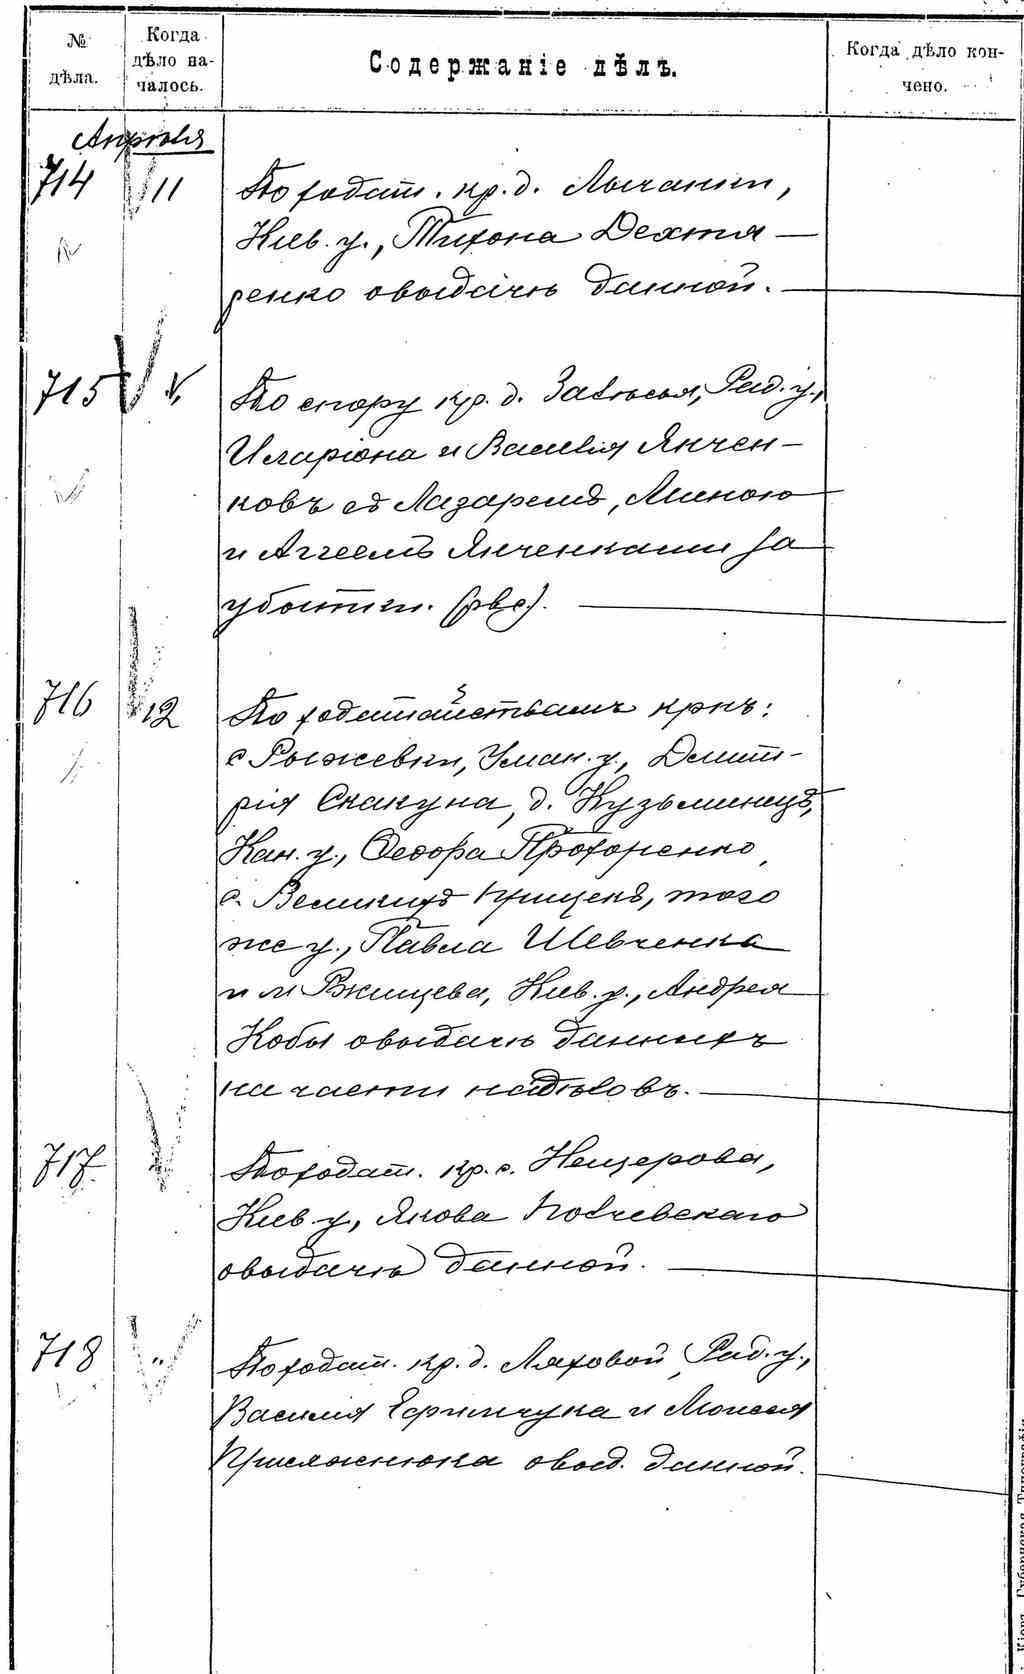 № дѣла.
Когда дѣло на-
чалось.
Содержаніе дѣлъ.
Когда дѣло кон-
чено.
Апрѣля
714 11 По ходат. кр. д. Лычанки,
Кіев. у., Тихона Дехтя-
ренко о выдачѣ данной.
715 По спору кр. д. Рад. у.,
Иларіона и Василія Янчен-
ковъ съ Лазаремъ, Миною
и Аггеемъ Янченками за
убытки. (рвс).
716 12 По ходатайствамъ крнъ:
с Рыжевки, Уман. у., Дмит-
рія Скакуна, д. Кузьминецъ,
Кан. у., Ѳедора Прохоренко,
с. Великихъ Прицекъ, того
же у., Павла Шевченка
и м Ржищева, Кіев. у., Андрея
Кобы о выдачѣ данныхъ
на части надѣловъ.
717 По ходат. кр. с. Нещерова,
Кіев. у., Якова
о выдачѣ данной.
718 " По ходат. кр. д. Ляховой Рад. у.,
Василія Ефимчука и Моисея
Присяжнюка о выд. данной.
Кіевъ. Губернская Типографія.